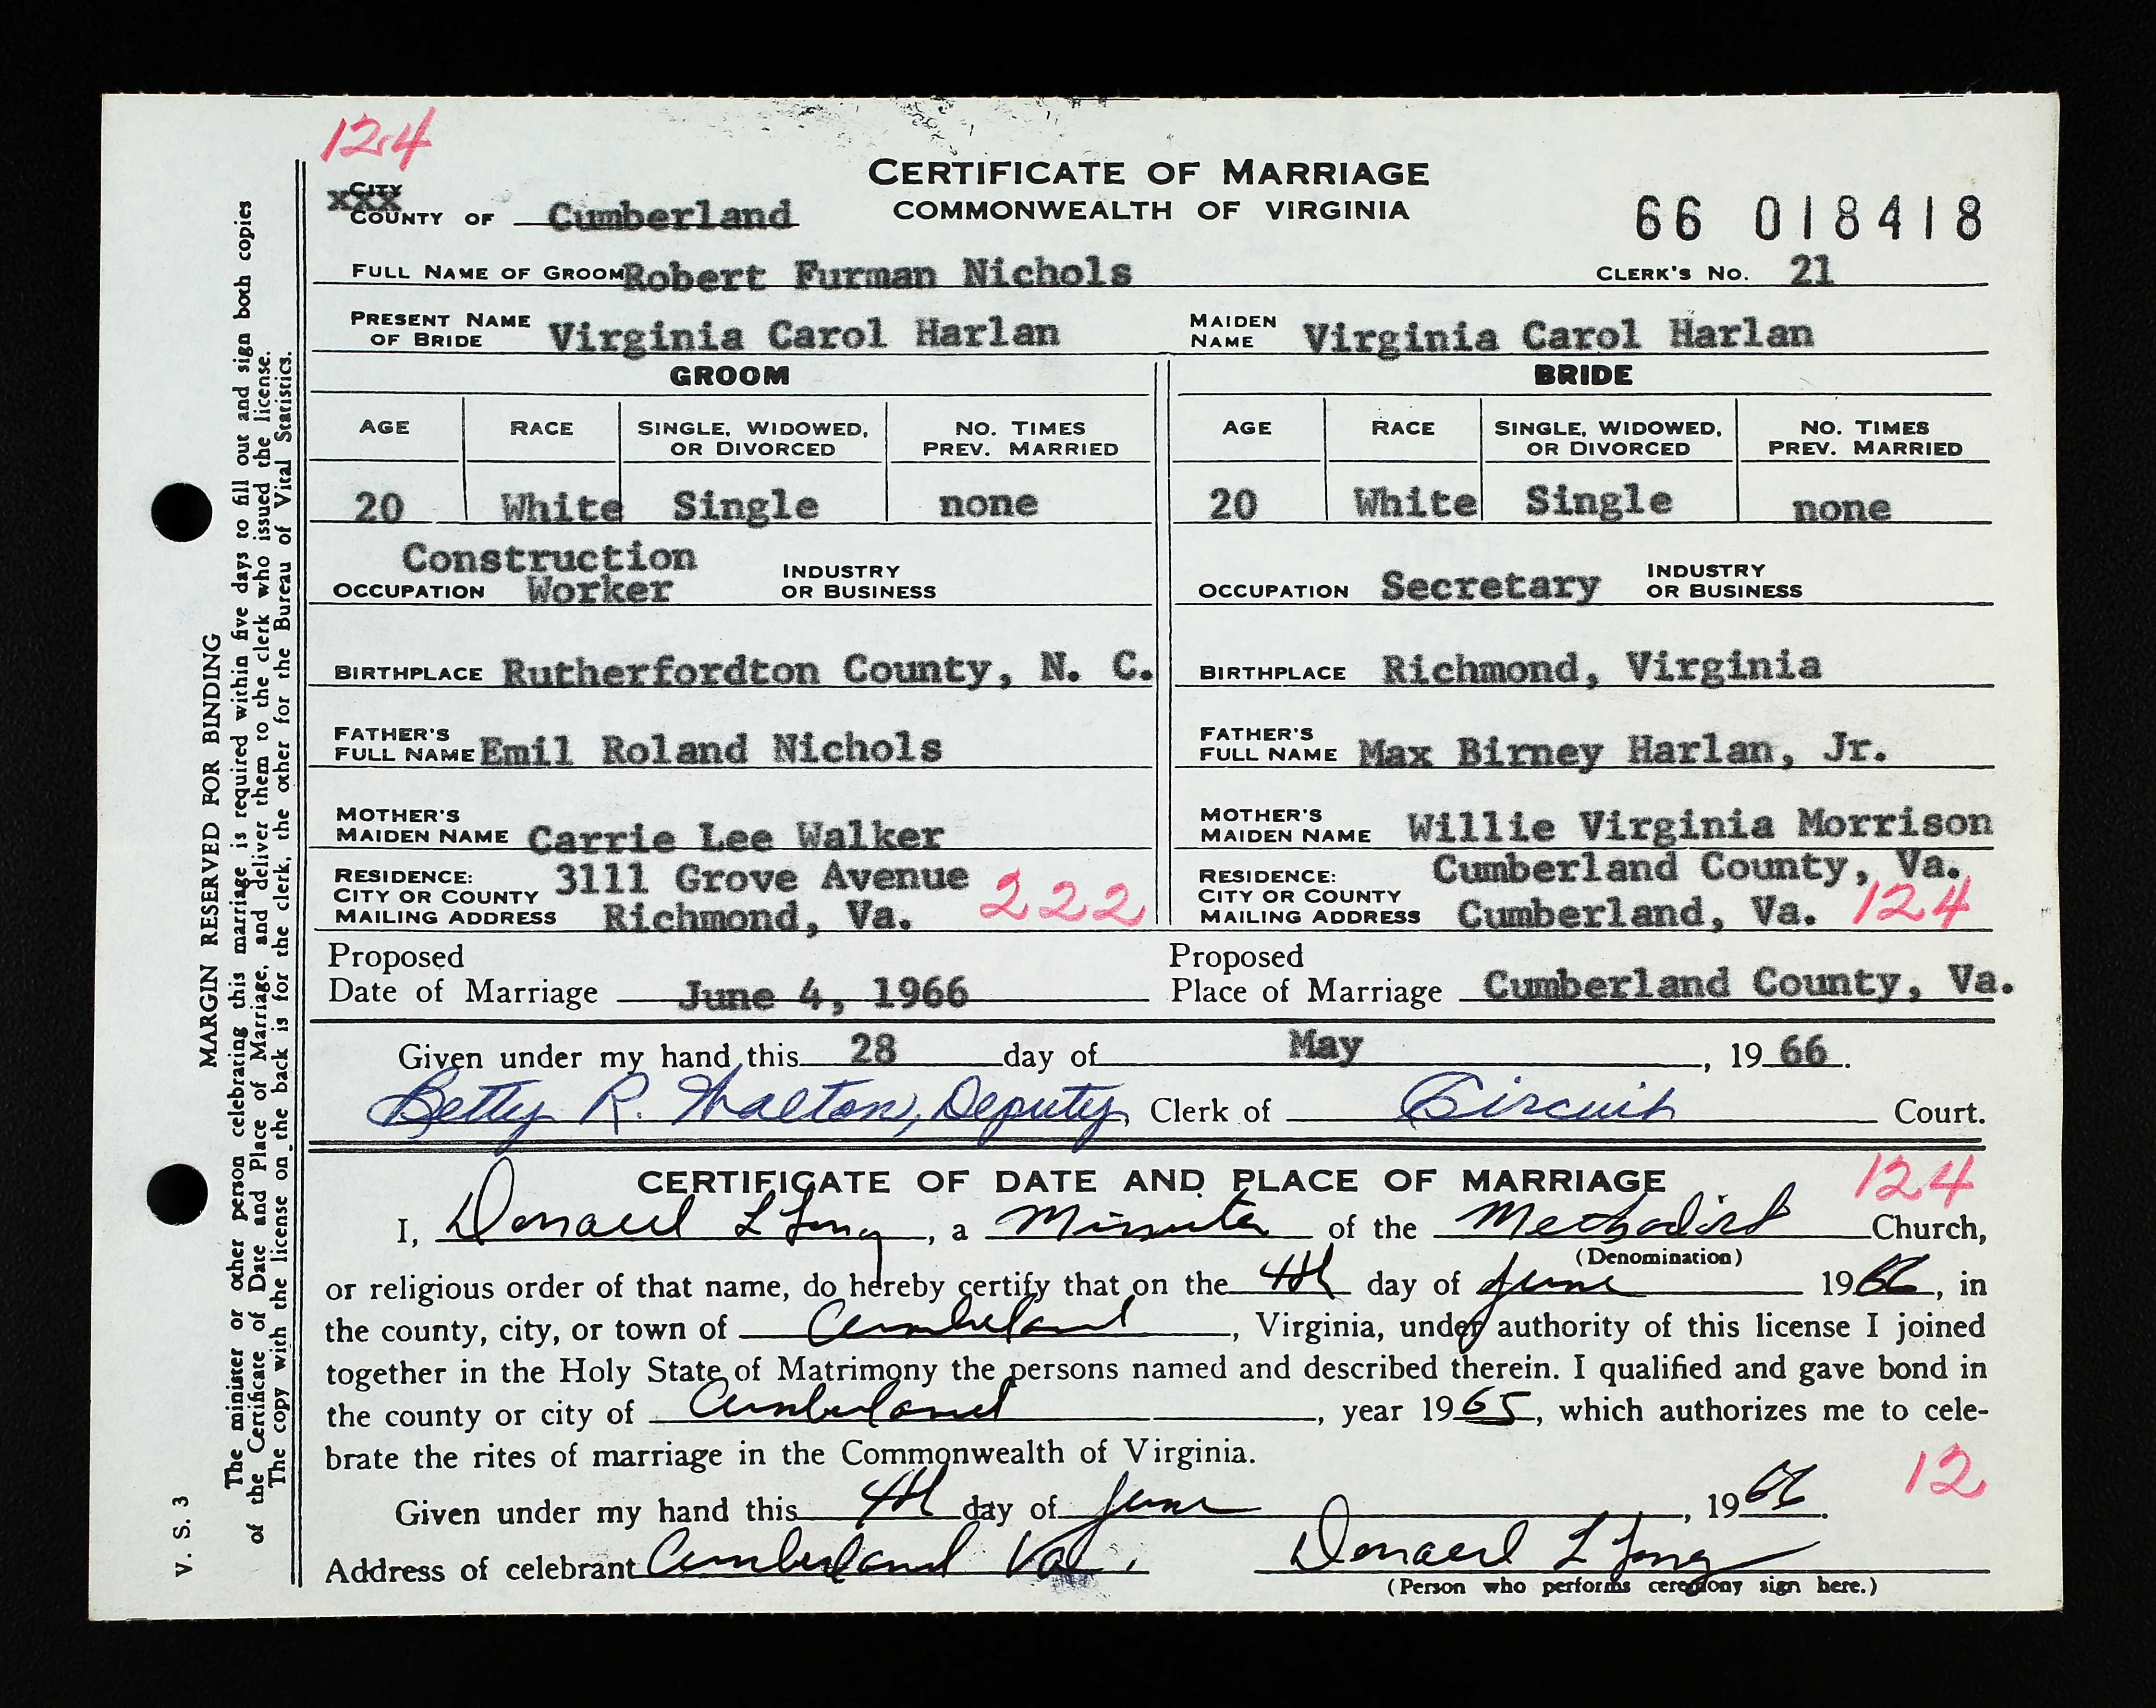 124
CITY
XXX
COUNTY OF Cumberland
CERTIFICATE OF MARRIAGE
COMMONWEALTH OF VIRGINIA
66 018418
FULL NAME OF GROOM Robert Furman Nichols
CLERK'S NO. 21
PRESENT NAME OF BRIDE Virginia Carol Harlan
MAIDEN NAME Virginia Carol Harlan
GROOM
AGE RACE SINGLE, WIDOWED, OR DIVORCED NO. TIMES PREV. MARRIED
20 White Single none
Construction
OCCUPATION Worker INDUSTRY OR BUSINESS
BIRTHPLACE Rutherfordton County, N. C.
FATHER'S FULL NAME Emil Roland Nichols
MOTHER'S MAIDEN NAME Carrie Lee Walker
RESIDENCE: 3111 Grove Avenue
CITY OR COUNTY 222
MAILING ADDRESS Richmond, Va.
BRIDE
AGE RACE SINGLE, WIDOWED, OR DIVORCED NO. TIMES PREV. MARRIED
20 White Single none
OCCUPATION Secretary INDUSTRY OR BUSINESS
BIRTHPLACE Richmond, Virginia
FATHER'S FULL NAME Max Birney Harlan, Jr.
MOTHER'S MAIDEN NAME Willie Virginia Morrison
RESIDENCE: Cumberland County, Va.
CITY OR COUNTY
MAILING ADDRESS Cumberland, Va. 124
Proposed
Date of Marriage June 4, 1966
Proposed
Place of Marriage Cumberland County, Va.
Given under my hand this 28 day of May, 1966.
Betty R. Walton, Deputy, Clerk of Circuit Court.
CERTIFICATE OF DATE AND PLACE OF MARRIAGE 124
I, Donald L Long, a Minister of the Methodist Church,
(Denomination)
or religious order of that name, do hereby certify that on the 4th day of June 1966, in
the county, city, or town of Cumberland, Virginia, under authority of this license I joined
together in the Holy State of Matrimony the persons named and described therein. I qualified and gave bond in
the county or city of Cumberland, year 1965, which authorizes me to cele-
brate the rites of marriage in the Commonwealth of Virginia.
12
Given under my hand this 4th day of June, 1966.
Address of celebrant Cumberland Va. Donald L Long
(Person who performs ceremony sign here.)
MARGIN RESERVED FOR BINDING
The minister or other person celebrating this marriage is required within five days to fill out and sign both copies
of the Certificate of Date and Place of Marriage, and deliver them to the clerk who issued the license.
The copy with the license on the back is for the clerk, the other for the Bureau of Vital Statistics.
V. S. 3